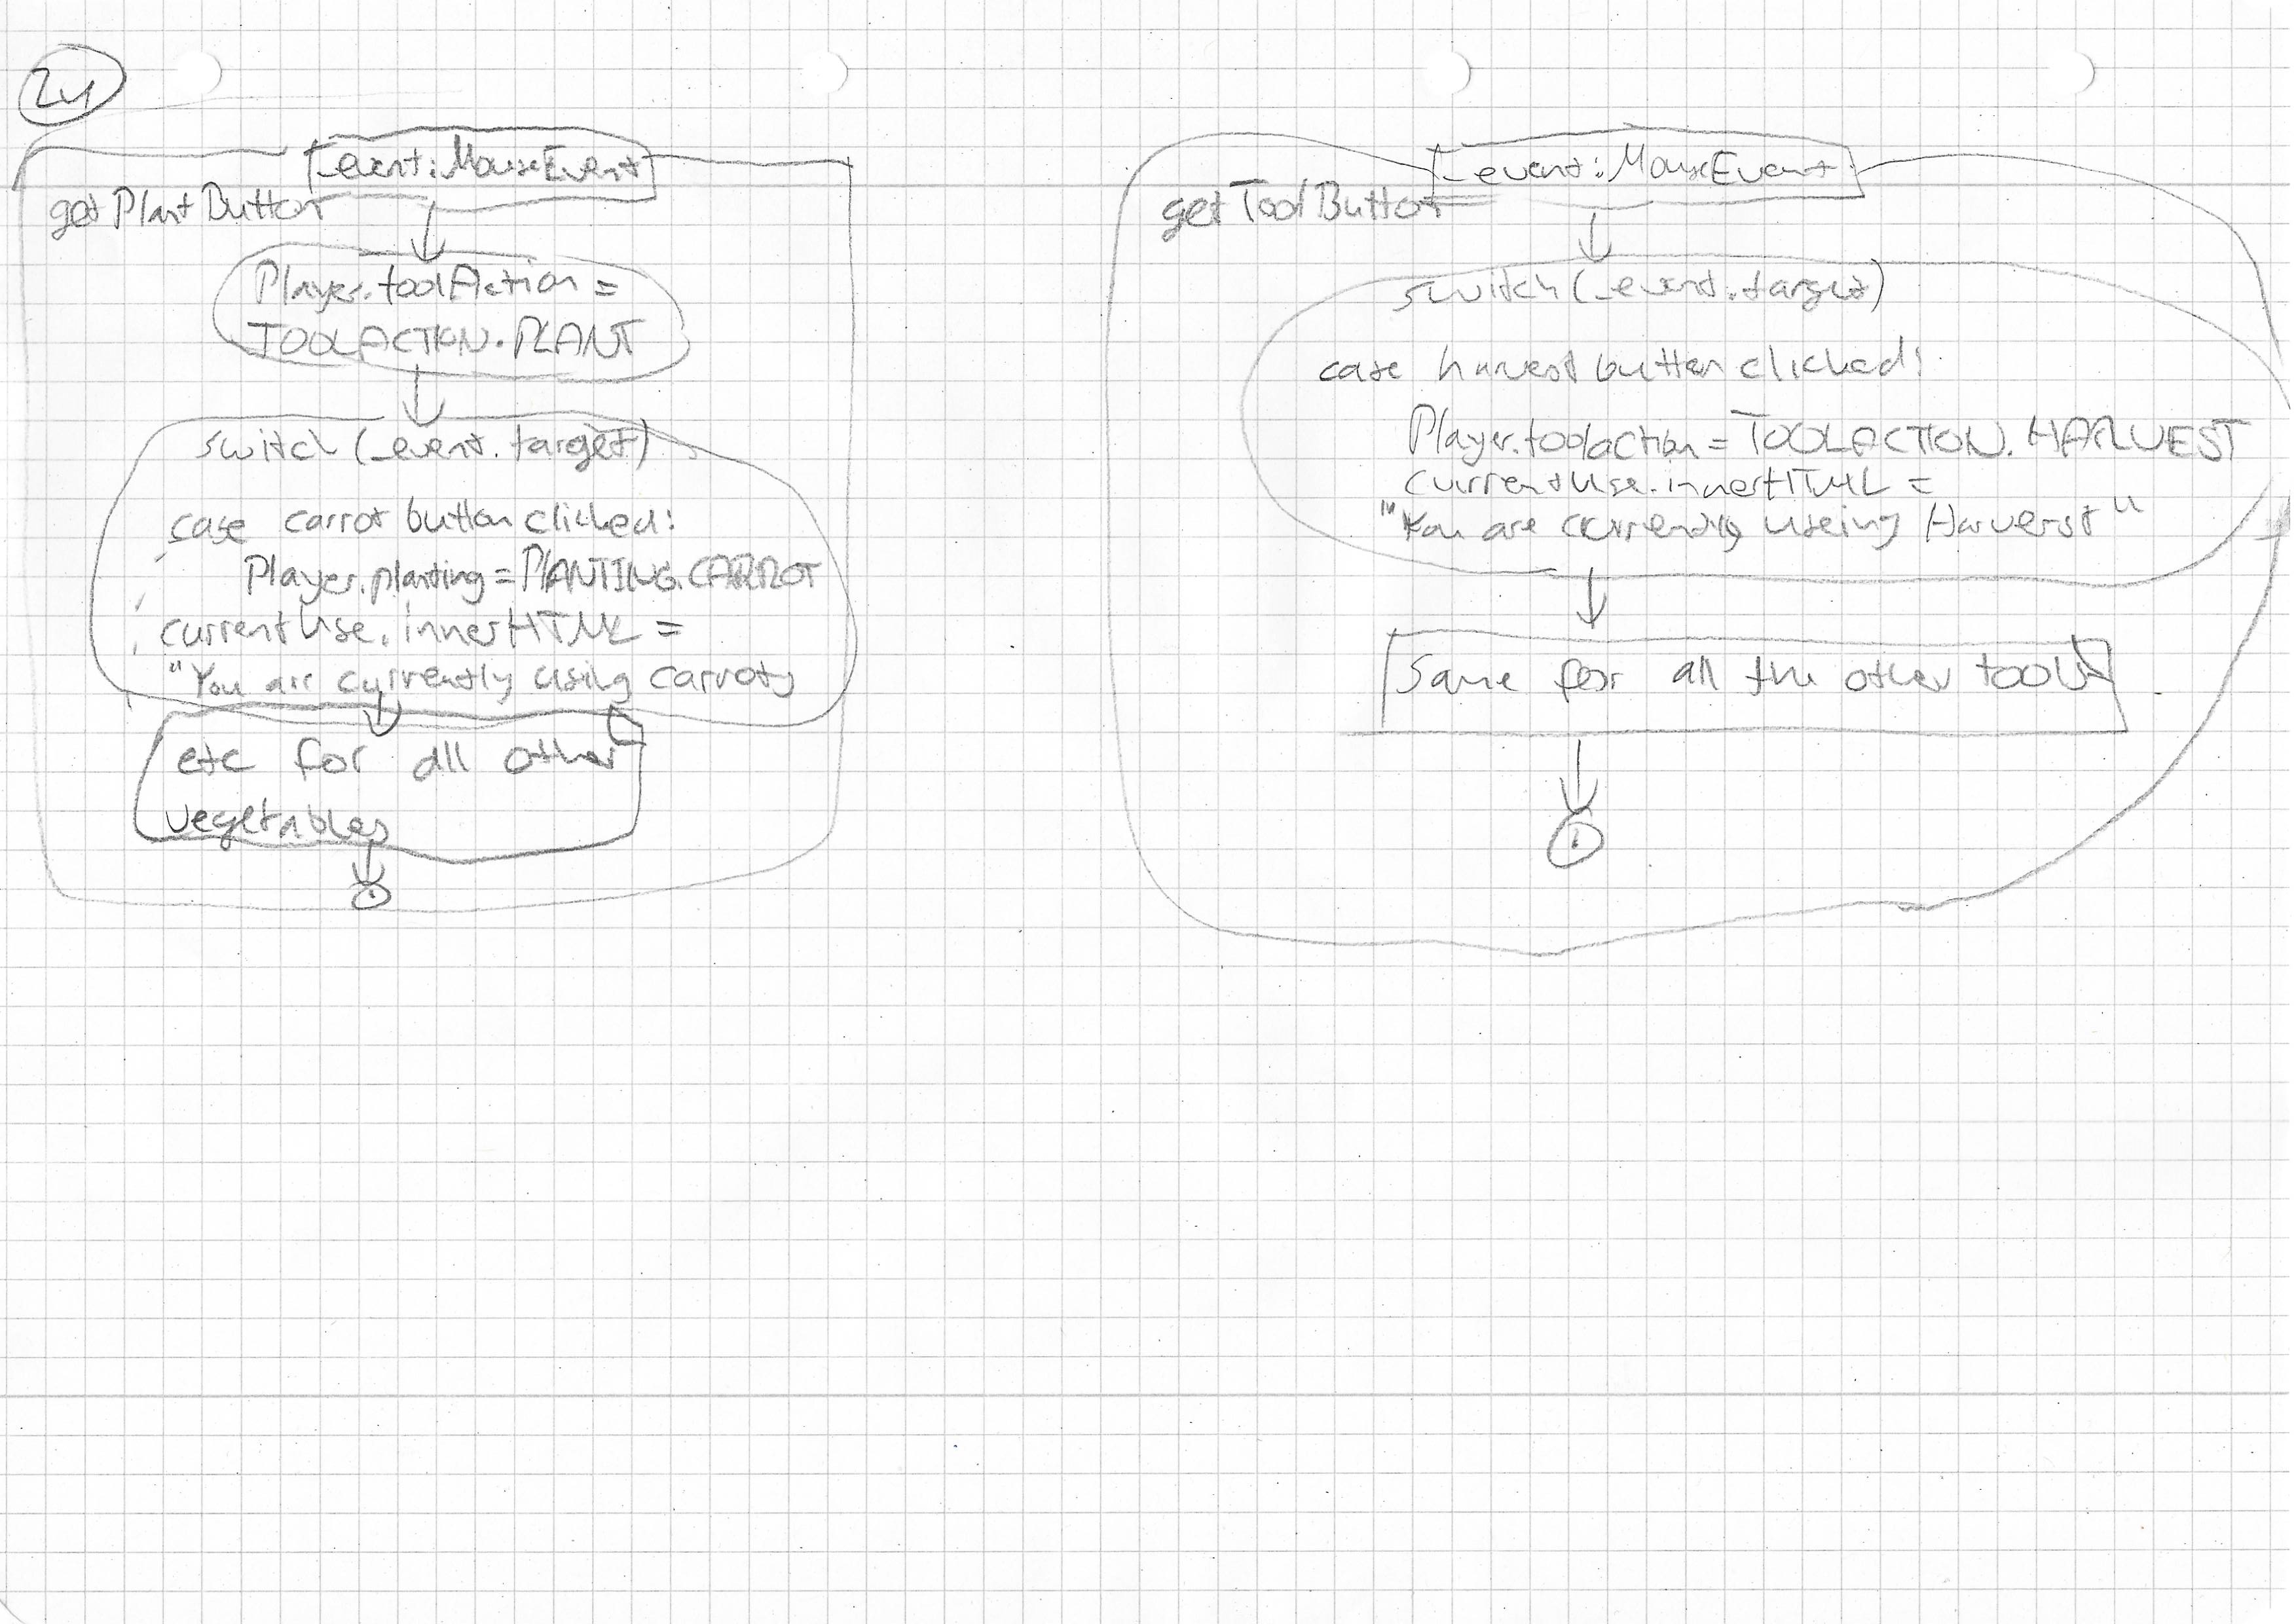 24
_event: MouseEvent
getPlantButton
Player.toolAction =
TOOLACTION.PLANT
switch(_event.target)
case carrot button clicked:
Player.planting = PLANTING.CARROT
currentUse.innerHTML =
"You are currently using carrots
etc for all other
vegetables
_event: MouseEvent
getToolButton
switch(_event.target)
case harvest button clicked:
Player.toolaction = TOOLACTION.HARVEST
currentUse.innerHTML =
"You are currently useing Harverst"
Same for all the other tools